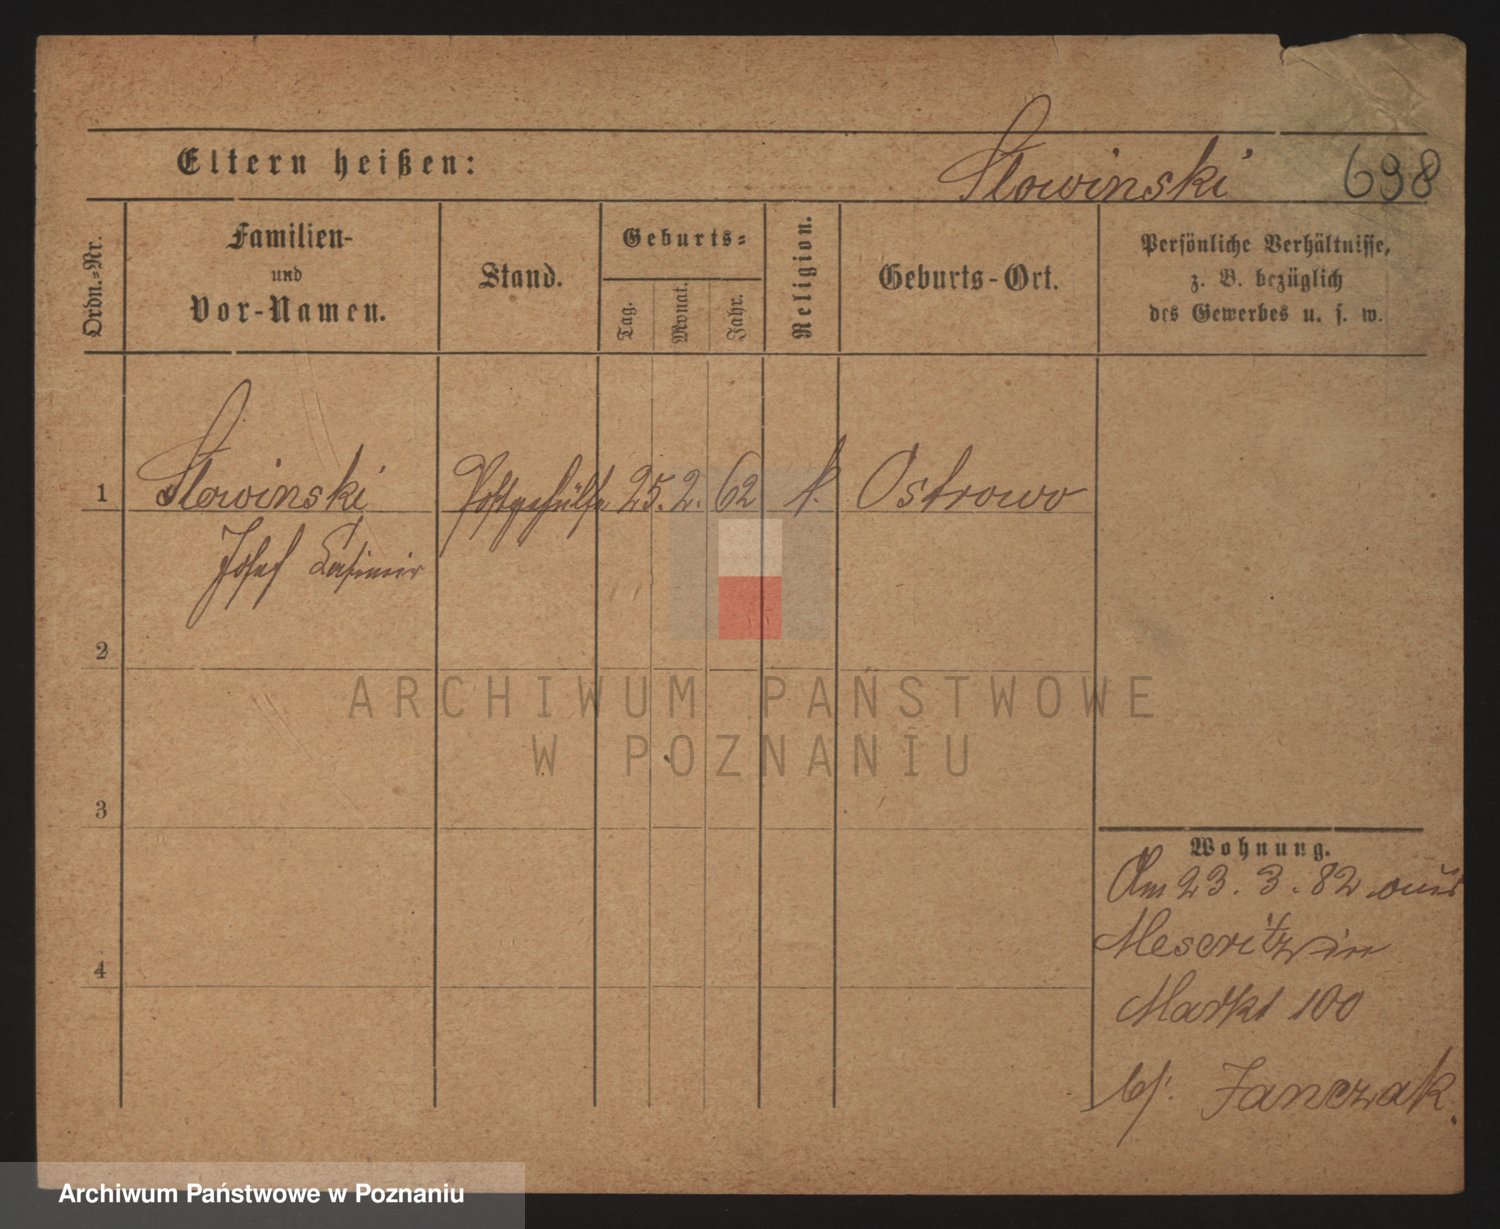 Slowinski 698
Eltern heißen:
Ordn.-Nr.
Familien-
und
Vor-Namen.
Stand.
Geburts-
Tag.
Monat.
Jahr.
Religion.
Geburts-Ort.
Persönliche Verhältnisse,
z. B. bezüglich
des Gewerbes u. s. w.
1 Slowinski Postgehülfe 25. 2. 62 k. Ostrowo
Josef Casimir
2
3
4
Wohnung.
Am 23. 3. 82 aus
Meseritz in
Markt 100
bei Janczak.
ARCHIWUM PAŃSTWOWE
W POZNANIU
Archiwum Państwowe w Poznaniu